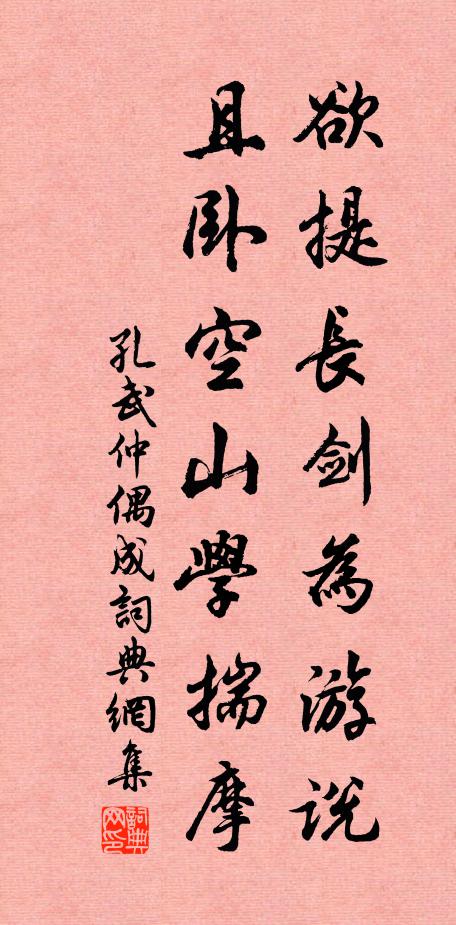 欲提長劍為游說
且卧空山學揣摩
孔武仲偶成詞典網集
詞典網印